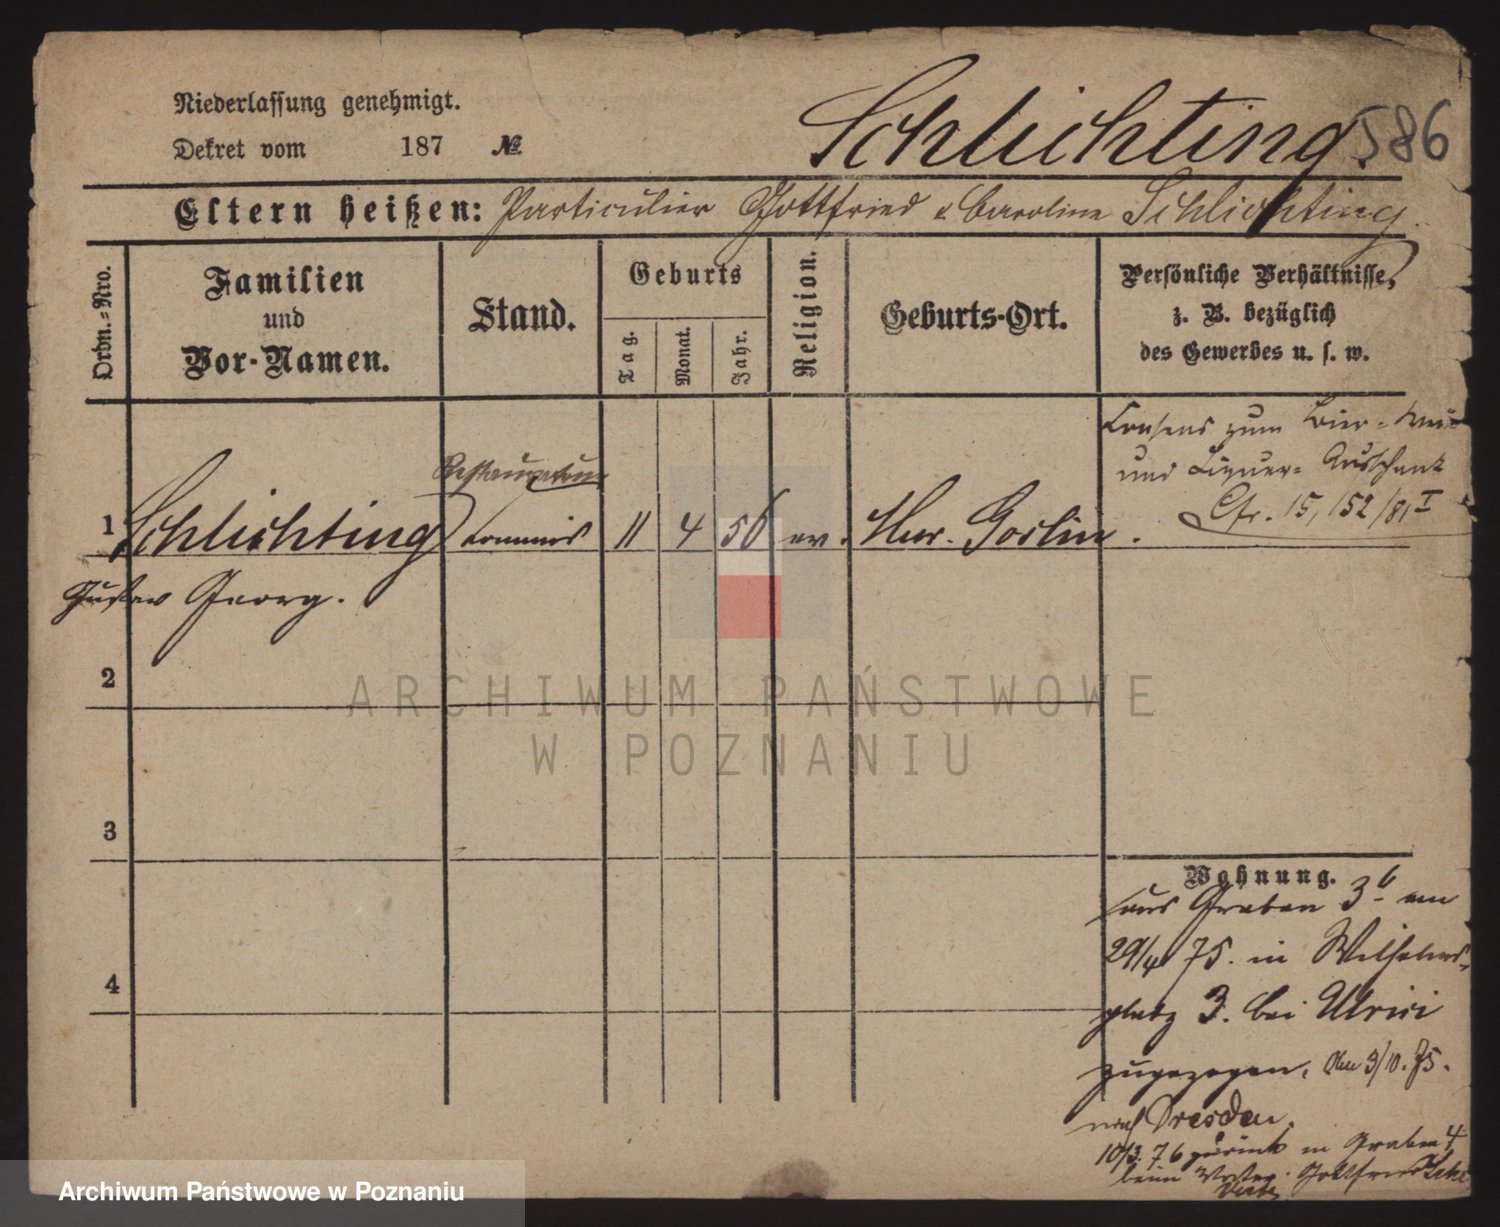 Niederlassung genehmigt.
Dekret vom 187 №
Schlichting. 586
Eltern heißen: Particulier Gottfried & Caroline Schlichting.
Ordn.-Nro.
Familien
und
Vor-Namen.
Stand.
Geburts
Tag.
Monat.
Jahr.
Religion.
Geburts-Ort.
Persönliche Verhältnisse,
z. B. bezüglich
des Gewerbes u. s. w.
Consens zum Bier-
und Liqueur-Ausschank
Cfr. 15,152/81 I
Restaurateur
1 Schlichting Commis 11 4 56 ev. Mur. Goslin.
Gustav Georg.
2
3
4
Wohnung.
aus Graben 3b am
29/4 75. in Wilhelms-
platz 3. bei Ulrici
zugezogen. Am 3/10. 75.
nach Dresden.
10/3. 76 zurück in Graben 4
beim Vater Gottfried
ARCHIWUM PAŃSTWOWE
W POZNANIU
Archiwum Państwowe w Poznaniu